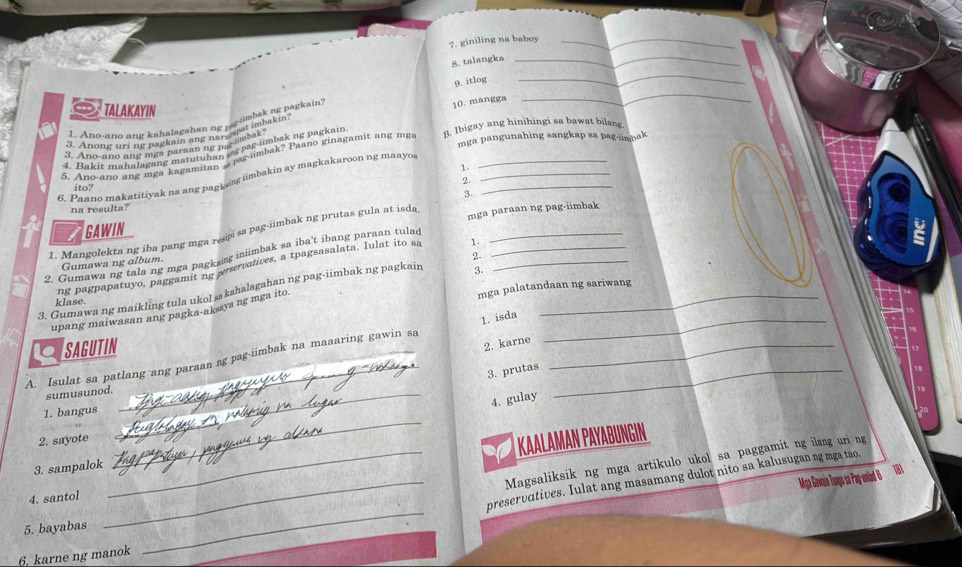 TALAKAYIN
1. Ano-ano ang kahalagahan ng pag-iimbak ng pagkain?
3. Anong uri ng pagkain ang nararapat imbakin?
3. Ano-ano ang mga paraan ng pag-iimbak?
4. Bakit mahalagang matutuhan ang pag-iimbak ng pagkain.
5. Ano-ano ang mga kagamitan sa pag-iimbak? Paano ginagamit ang mga
ito?
6. Paano makatitiyak na ang pagkaing iimbakin ay magkakaroon ng maayos
na resulta?
GAWIN
1. Mangolekta ng iba pang mga resipi sa pag-iimbak ng prutas gula at isda.
Gumawa ng album.
2. Gumawa ng tala ng mga pagkaing iniimbak sa iba't ibang paraan tulad
ng pagpapatuyo, paggamit ng perservatives, a tpagsasalata. Iulat ito sa
klase.
3. Gumawa ng maikling tula ukol sa kahalagahan ng pag-iimbak ng pagkain
upang maiwasan ang pagka-aksaya ng mga ito.
SAGUTIN
A. Isulat sa patlang ang paraan ng pag-iimbak na maaaring gawin sa
sumusunod.
1. bangus
2. sayote na malamig na lugar
3. sampalok
4. santol
5. bayabas
6. karne ng manok
7. giniling na baboy
8. talangka
9. itlog
10. mangga
B. Ibigay ang hinihingi sa bawat bilang.
mga pangunahing sangkap sa pag-iimbak
1.
2.
3.
mga paraan ng pag-iimbak
1.
2.
3.
mga palatandaan ng sariwang
1. isda
2. karne
3. prutas
4. gulay
KAALAMAN PAYABUNGIN
Magsaliksik ng mga artikulo ukol sa paggamit ng ilang uri ng
preservatives. Iulat ang masamang dulot nito sa kalusugan ng mga tao.
181
inc
15
16
17
18
19
20